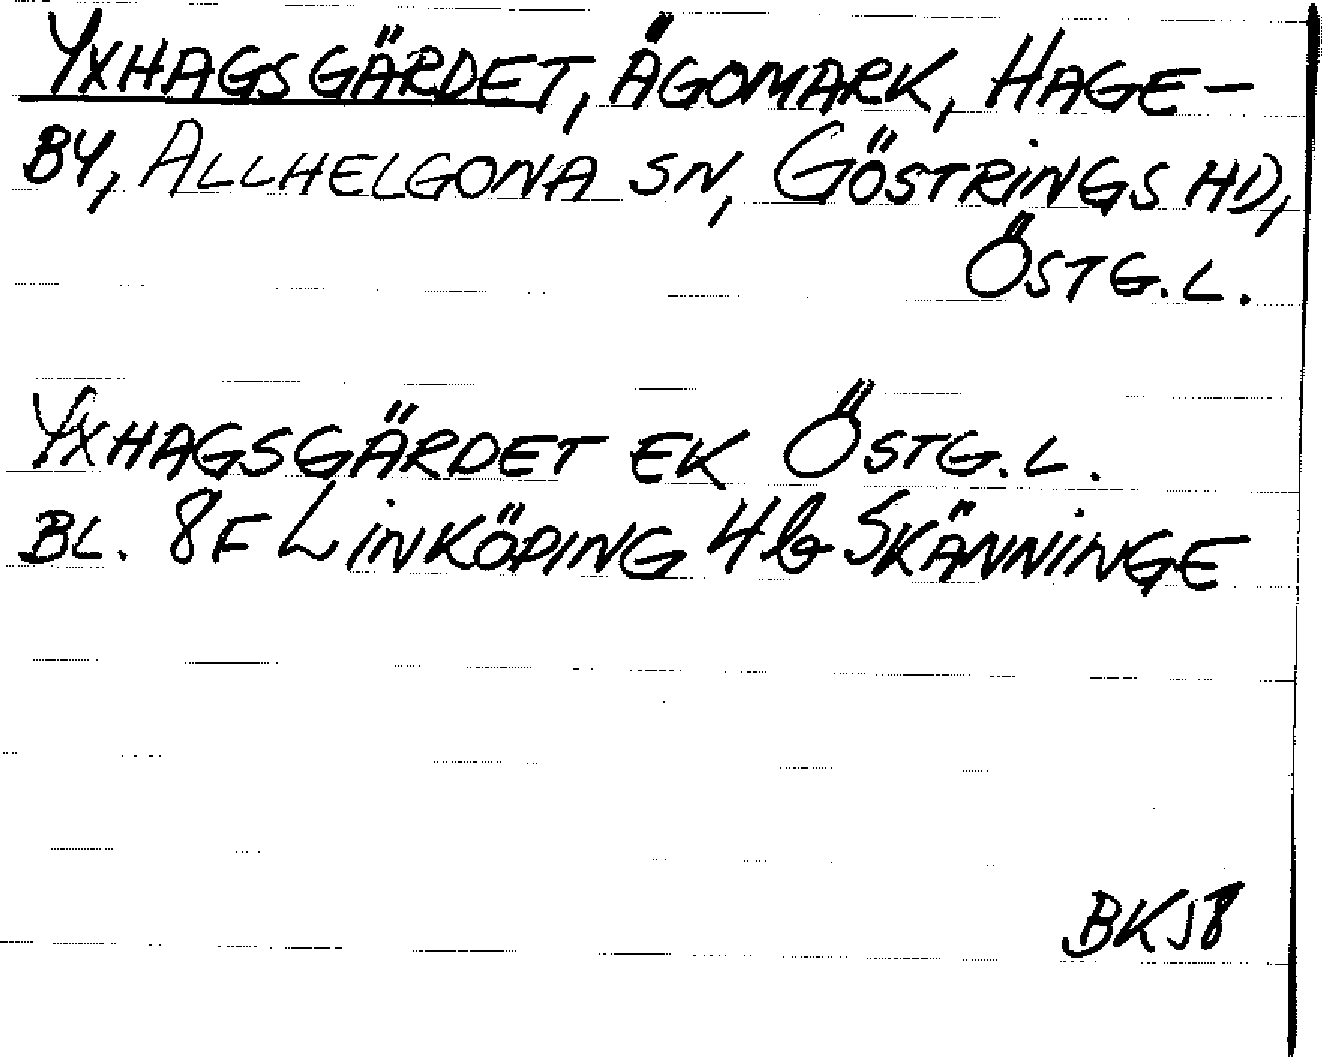 YXHAGSGÄRDET, ÄGOMARK, HAGE-
BY, ALLHELGONA SN, GÖSTRINGS HD,
ÖSTG.L.
YXHAGSGÄRDET EK ÖSTG.L.
BL. 8F LINKÖPING 4b SKÄNNINGE
BKJ8